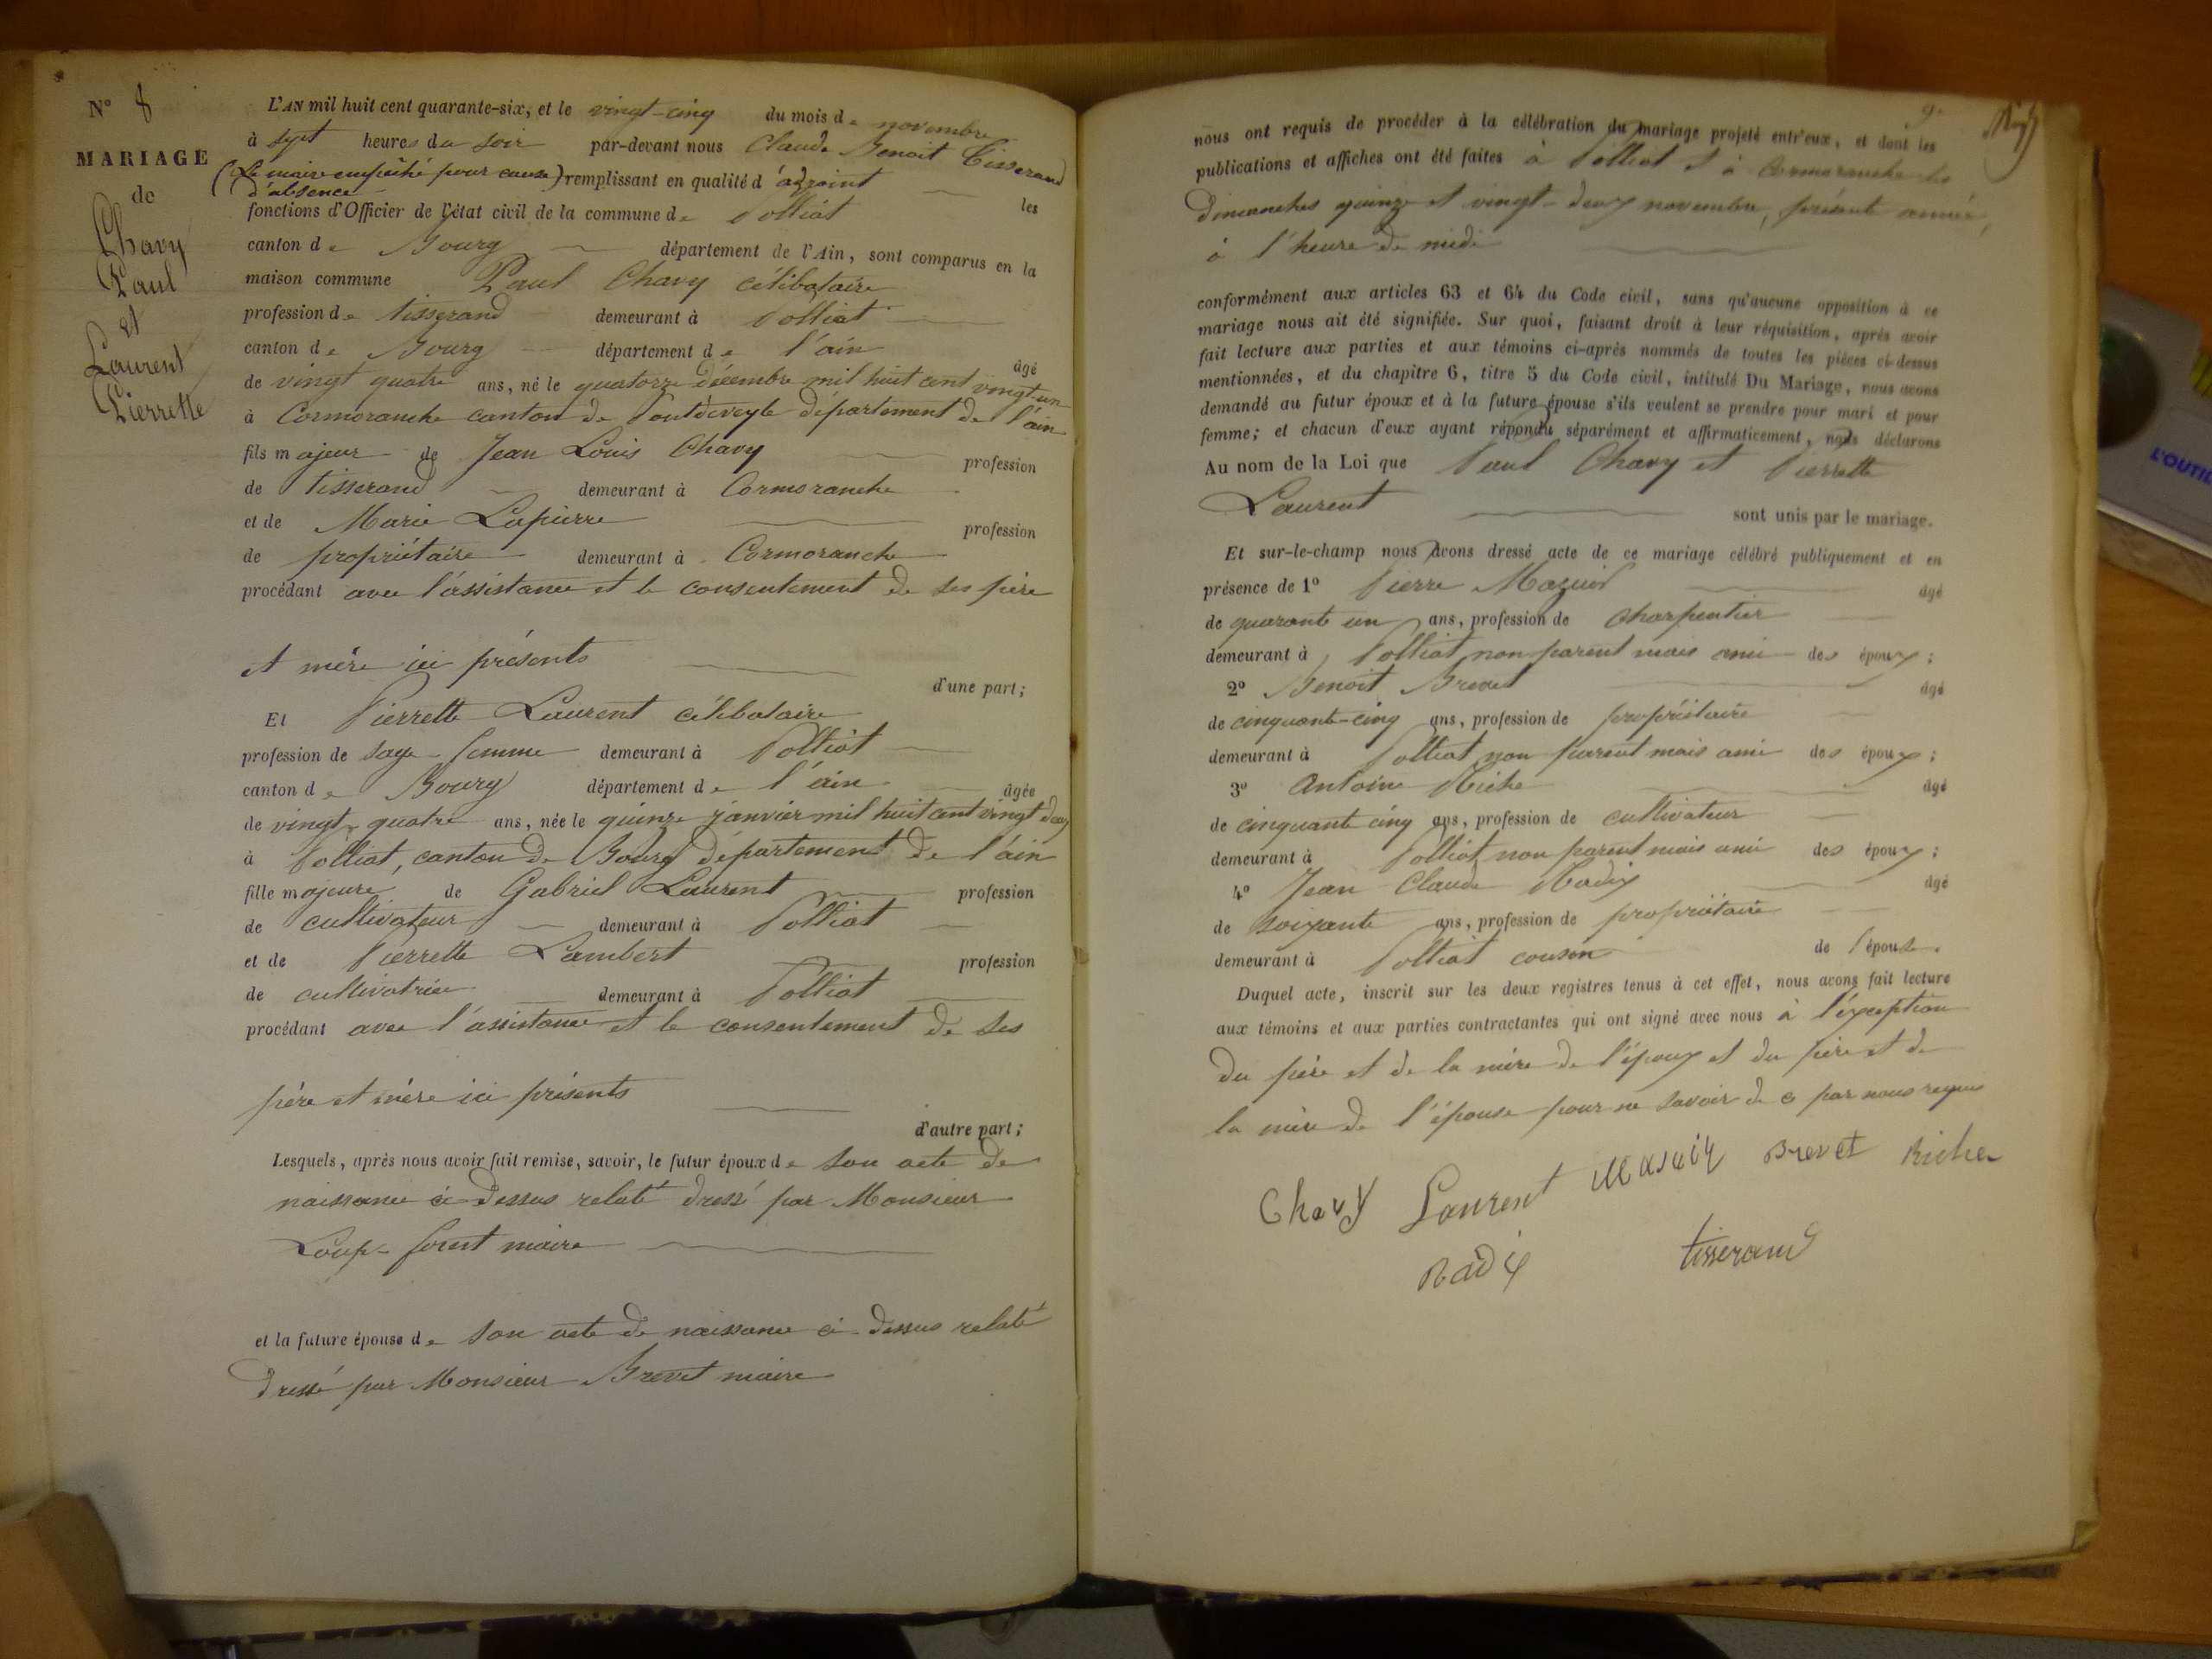 N° 8
MARIAGE
de
Chavy
Paul
et
Laurent
Pierrette
L'AN mil huit cent quarante-six, et le vingt-cinq du mois de novembre
à sept heures du soir par-devant nous Claude Benoit Tisserand
(Le maire empêché pour cause d'absence) remplissant en qualité d'adjoint les
fonctions d'Officier de l'état civil de la commune de Polliat
canton de Bourg département de l'Ain, sont comparus en la
maison commune Paul Chavy célibataire
profession de tisserand demeurant à Polliat
canton de Bourg département de l'ain âgé
de vingt quatre ans, né le quatorze décembre mil huit cent vingt-un
à Cormoranche canton de Pontdeveyle département de l'ain
fils majeur de Jean Louis Chavy profession
de tisserand demeurant à Cormoranche
et de Marie Lapierre profession
de propriétaire demeurant à Cormoranche
procédant avec l'assistance et le consentement de ses père
et mère ici présents
d'une part;
Et Pierrette Laurent célibataire
profession de sage-femme demeurant à Polliat
canton de Bourg département de l'ain âgée
de vingt quatre ans, née le quinze janvier mil huit cent vingt deux
à Polliat, canton de Bourg département de l'ain
fille majeure de Gabriel Laurent profession
de cultivateur demeurant à Polliat
et de Pierrette Lambert profession
de cultivatrice demeurant à Polliat
procédant avec l'assistance et le consentement de ses
père et mère ici présents
d'autre part;
Lesquels, après nous avoir fait remise, savoir, le futur époux de son acte de
naissance ci-dessus relaté dressé par Monsieur
Loup-forest maire
et la future épouse de son acte de naissance ci-dessus relaté
dressé par Monsieur Brevet maire
9.
nous ont requis de procéder à la célébration du mariage projeté entr'eux, et dont les
publications et affiches ont été faites à Polliat et à Cormoranche les
dimanches quinze et vingt-deux novembre, présente année,
à l'heure de midi
conformément aux articles 63 et 64 du Code civil, sans qu'aucune opposition à ce
mariage nous ait été signifiée. Sur quoi, faisant droit à leur réquisition, après avoir
fait lecture aux parties et aux témoins ci-après nommés de toutes les pièces ci-dessus
mentionnées, et du chapitre 6, titre 5 du Code civil, intitulé Du Mariage, nous avons
demandé au futur époux et à la future épouse s'ils veulent se prendre pour mari et pour
femme; et chacun d'eux ayant répondu séparément et affirmativement, nous déclarons
Au nom de la Loi que Paul Chavy et Pierrette
Laurent sont unis par le mariage.
Et sur-le-champ nous avons dressé acte de ce mariage célébré publiquement et en
présence de 1° Pierre Mazuir âgé
de quarante un ans, profession de charpentier
demeurant à Polliat non parent mais ami des époux;
2° Benoit Brevet âgé
de cinquante-cinq ans, profession de propriétaire
demeurant à Polliat non parent mais ami des époux;
3° Antoine Riche âgé
de cinquante cinq ans, profession de cultivateur
demeurant à Polliat non parent mais ami des époux;
4° Jean Claude Radix âgé
de soixante ans, profession de propriétaire
demeurant à Polliat cousin de l'épouse.
Duquel acte, inscrit sur les deux registres tenus à cet effet, nous avons fait lecture
aux témoins et aux parties contractantes qui ont signé avec nous à l'exception
du père et de la mère de l'époux et du père et de
la mère de l'épouse pour ne savoir de ce par nous requis
Chavy Laurent Brevet Riche
Radix tisserand
L'OUTIL